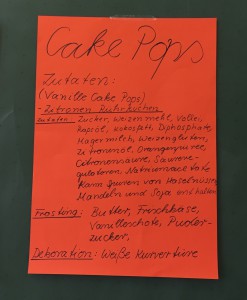 Cake Pops
Zutaten:
(Vanille Cake Pops)
- Zitronen Rührkuchen
Zutaten: Zucker, Weizenmehl, Vollei,
Rapsöl, Kokosfett, Diphosphate,
Magermilch, Weizengluten,
Zitronenöl, Orangenpüree,
Citronensäure, Säurere-
gulatoren, Natriumacetate
Kann Spuren von Haselnüssen
Mandeln und Soja enthalten
Frosting: Butter, Frischkäse,
Vanilleschote, Puder-
zucker,
Dekoration: Weiße Kuvertüre